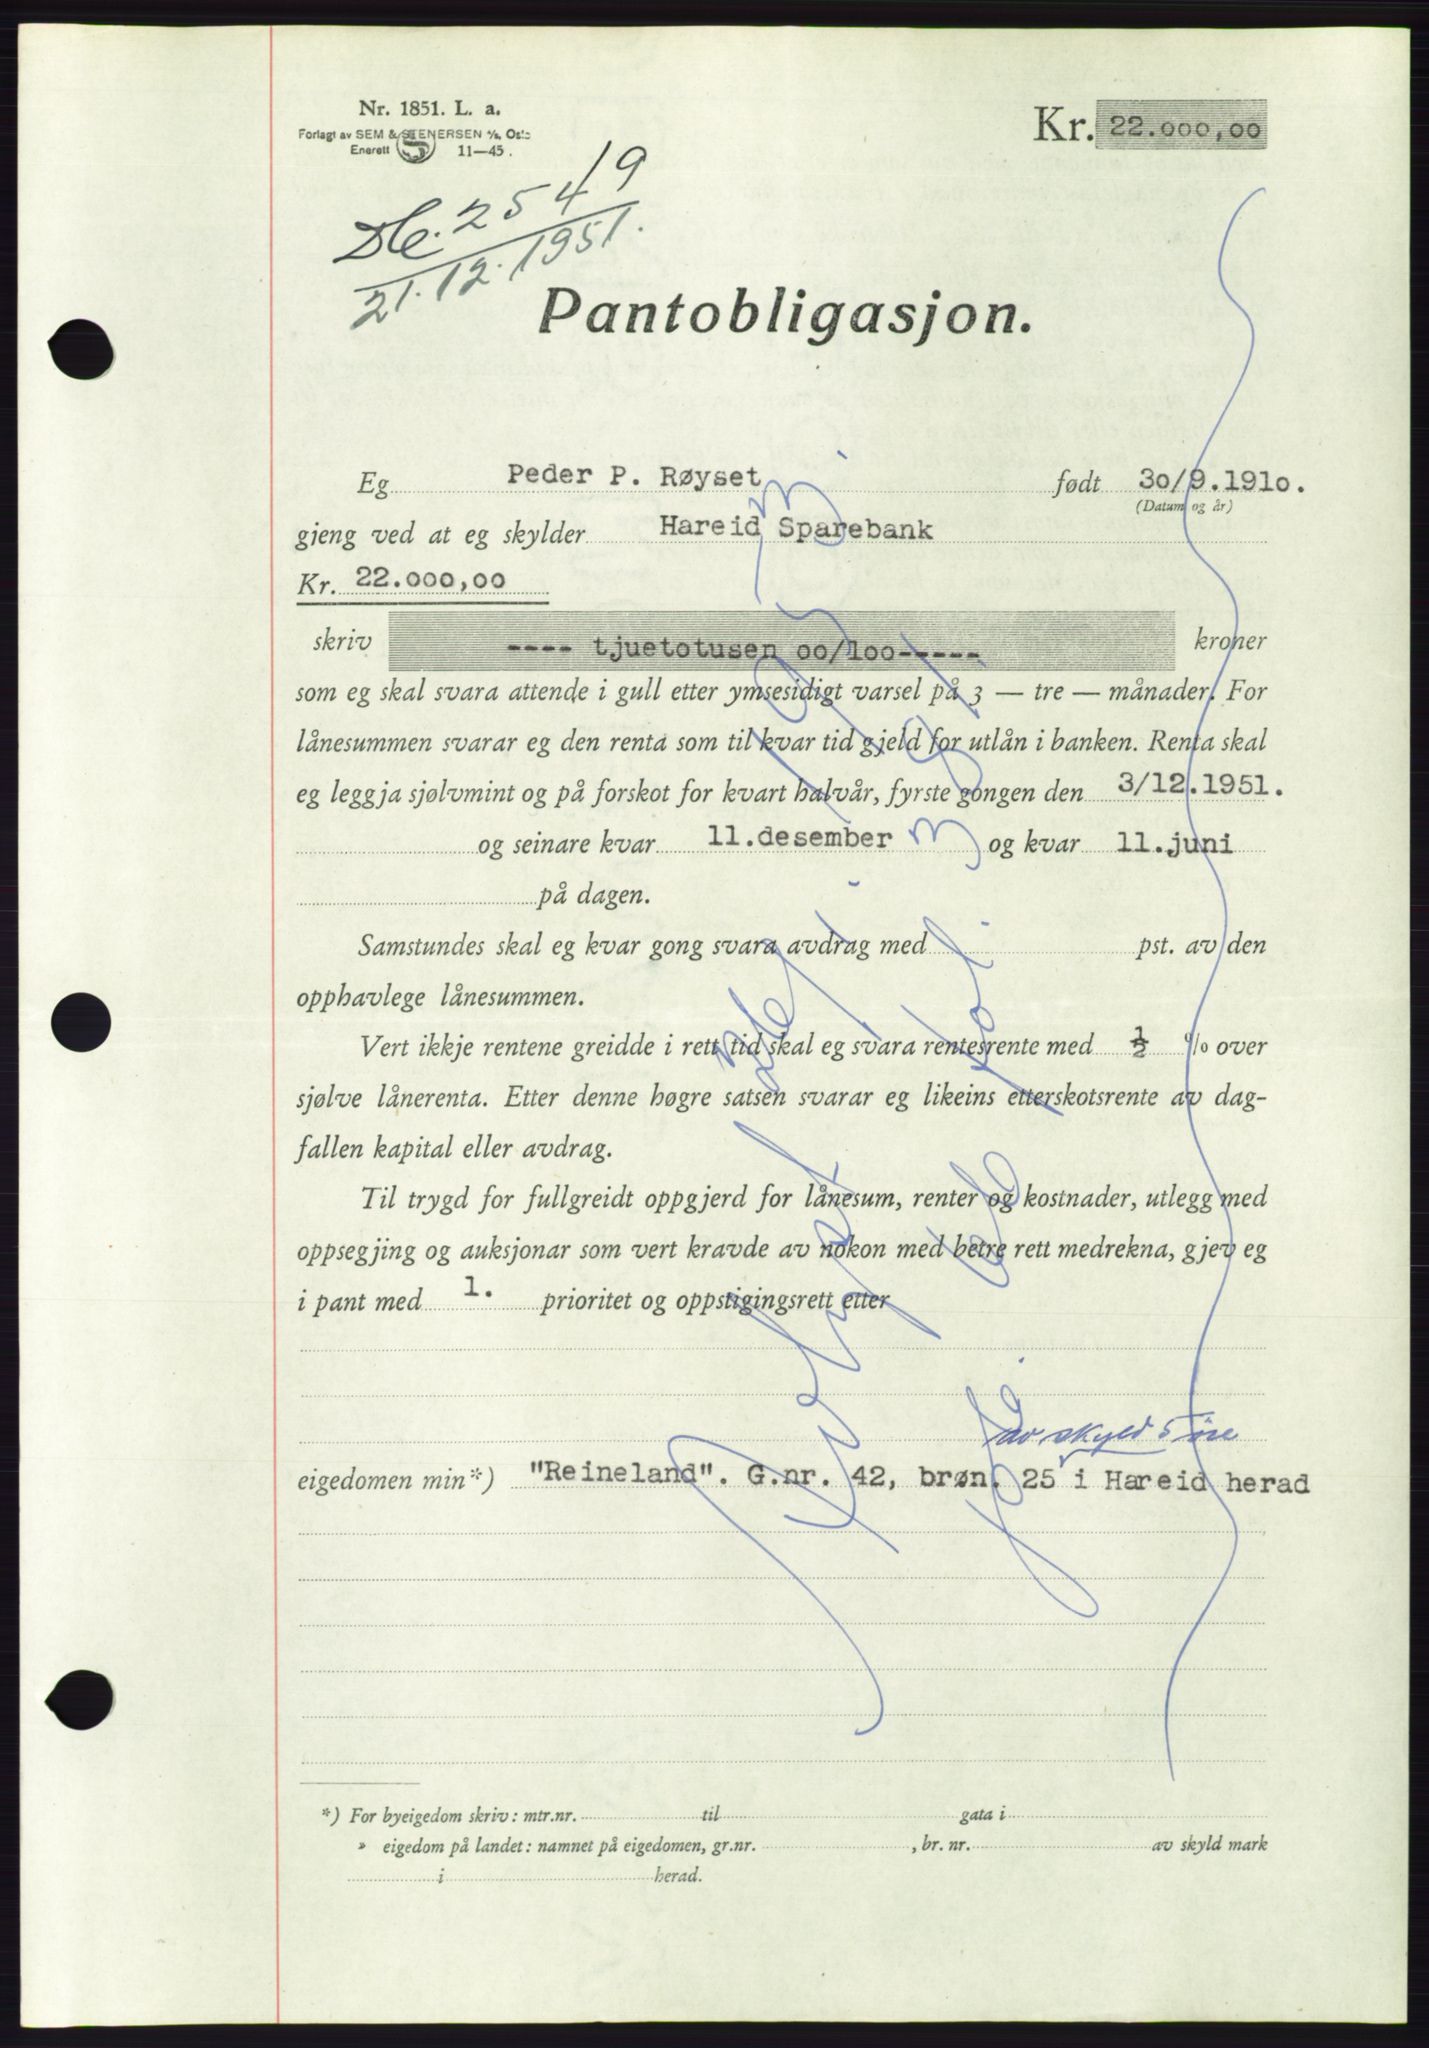 Nr. 1851. L. a.
Forlagt av SEM & STENERSEN A/S, Oslo
Enerett 11—45.
Kr. 22.000,00
2549
21.12.1951.
Pantobligasjon.
Eg Peder P. Røyset født 30/9.1910.
(Datum og år)
gjeng ved at eg skylder Hareid Sparebank
Kr. 22.000,00
skriv ---- tjuetotusen oo/100----- kroner
som eg skal svara attende i gull etter ymsesidigt varsel på 3 — tre — månader. For
lånesummen svarar eg den renta som til kvar tid gjeld for utlån i banken. Renta skal
eg leggja sjølvmint og på forskot for kvart halvår, fyrste gongen den 3/12.1951.
og seinare kvar 11.desember og kvar 11.juni
på dagen.
Samstundes skal eg kvar gong svara avdrag med pst. av den
opphavlege lånesummen.
Vert ikkje rentene greidde i rett tid skal eg svara rentesrente med ½ % over
sjølve lånerenta. Etter denne høgre satsen svarar eg likeins etterskotsrente av dag-
fallen kapital eller avdrag.
Til trygd for fullgreidt oppgjerd for lånesum, renter og kostnader, utlegg med
oppsegjing og auksjonar som vert kravde av nokon med betre rett medrekna, gjev eg
i pant med 1. prioritet og oppstigingsrett etter
av skyld 5 øre
eigedomen min*) "Reineland". G.nr. 42, brøn. 25 i Hareid herad
*) For byeigedom skriv: mtr.nr. til gata i
» eigedom på landet: namnet på eigedomen, gr.nr. , br. nr. av skyld mark
i herad.